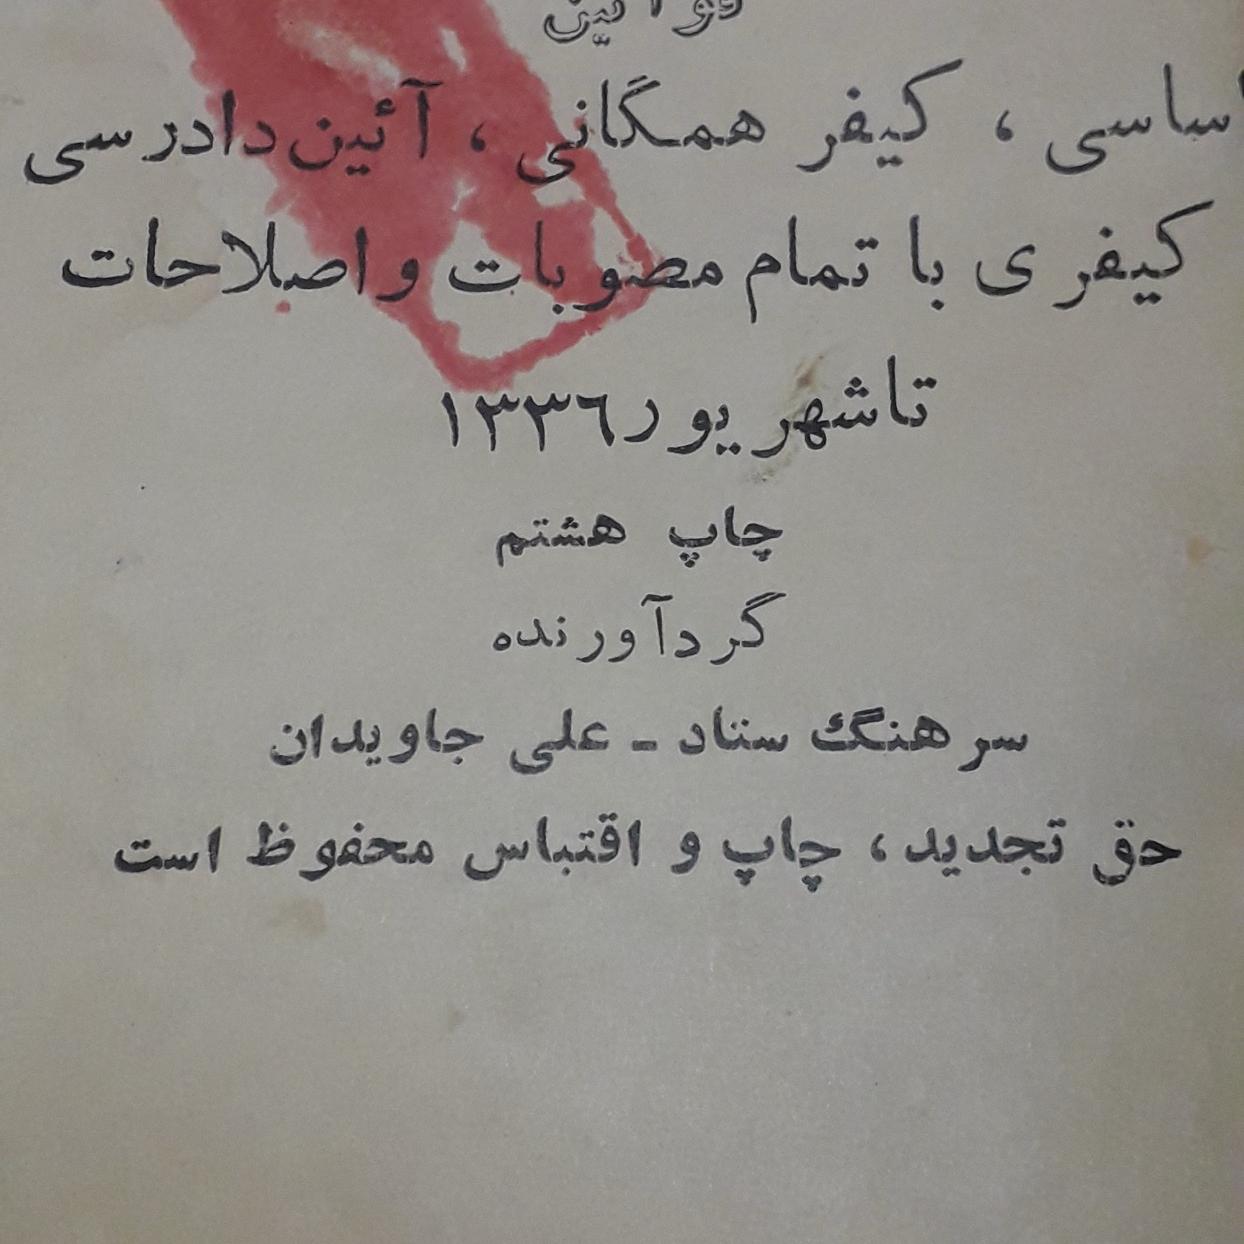 قوانین
اساسی ، کیفر همگانی ، آئین دادرسی
کیفری با تمام مصوبات و اصلاحات
تا شهریور ۱۳۳٦
چاپ هشتم
گردآورنده
سرهنگ ستاد - علی جاویدان
حق تجدید، چاپ و اقتباس محفوظ است